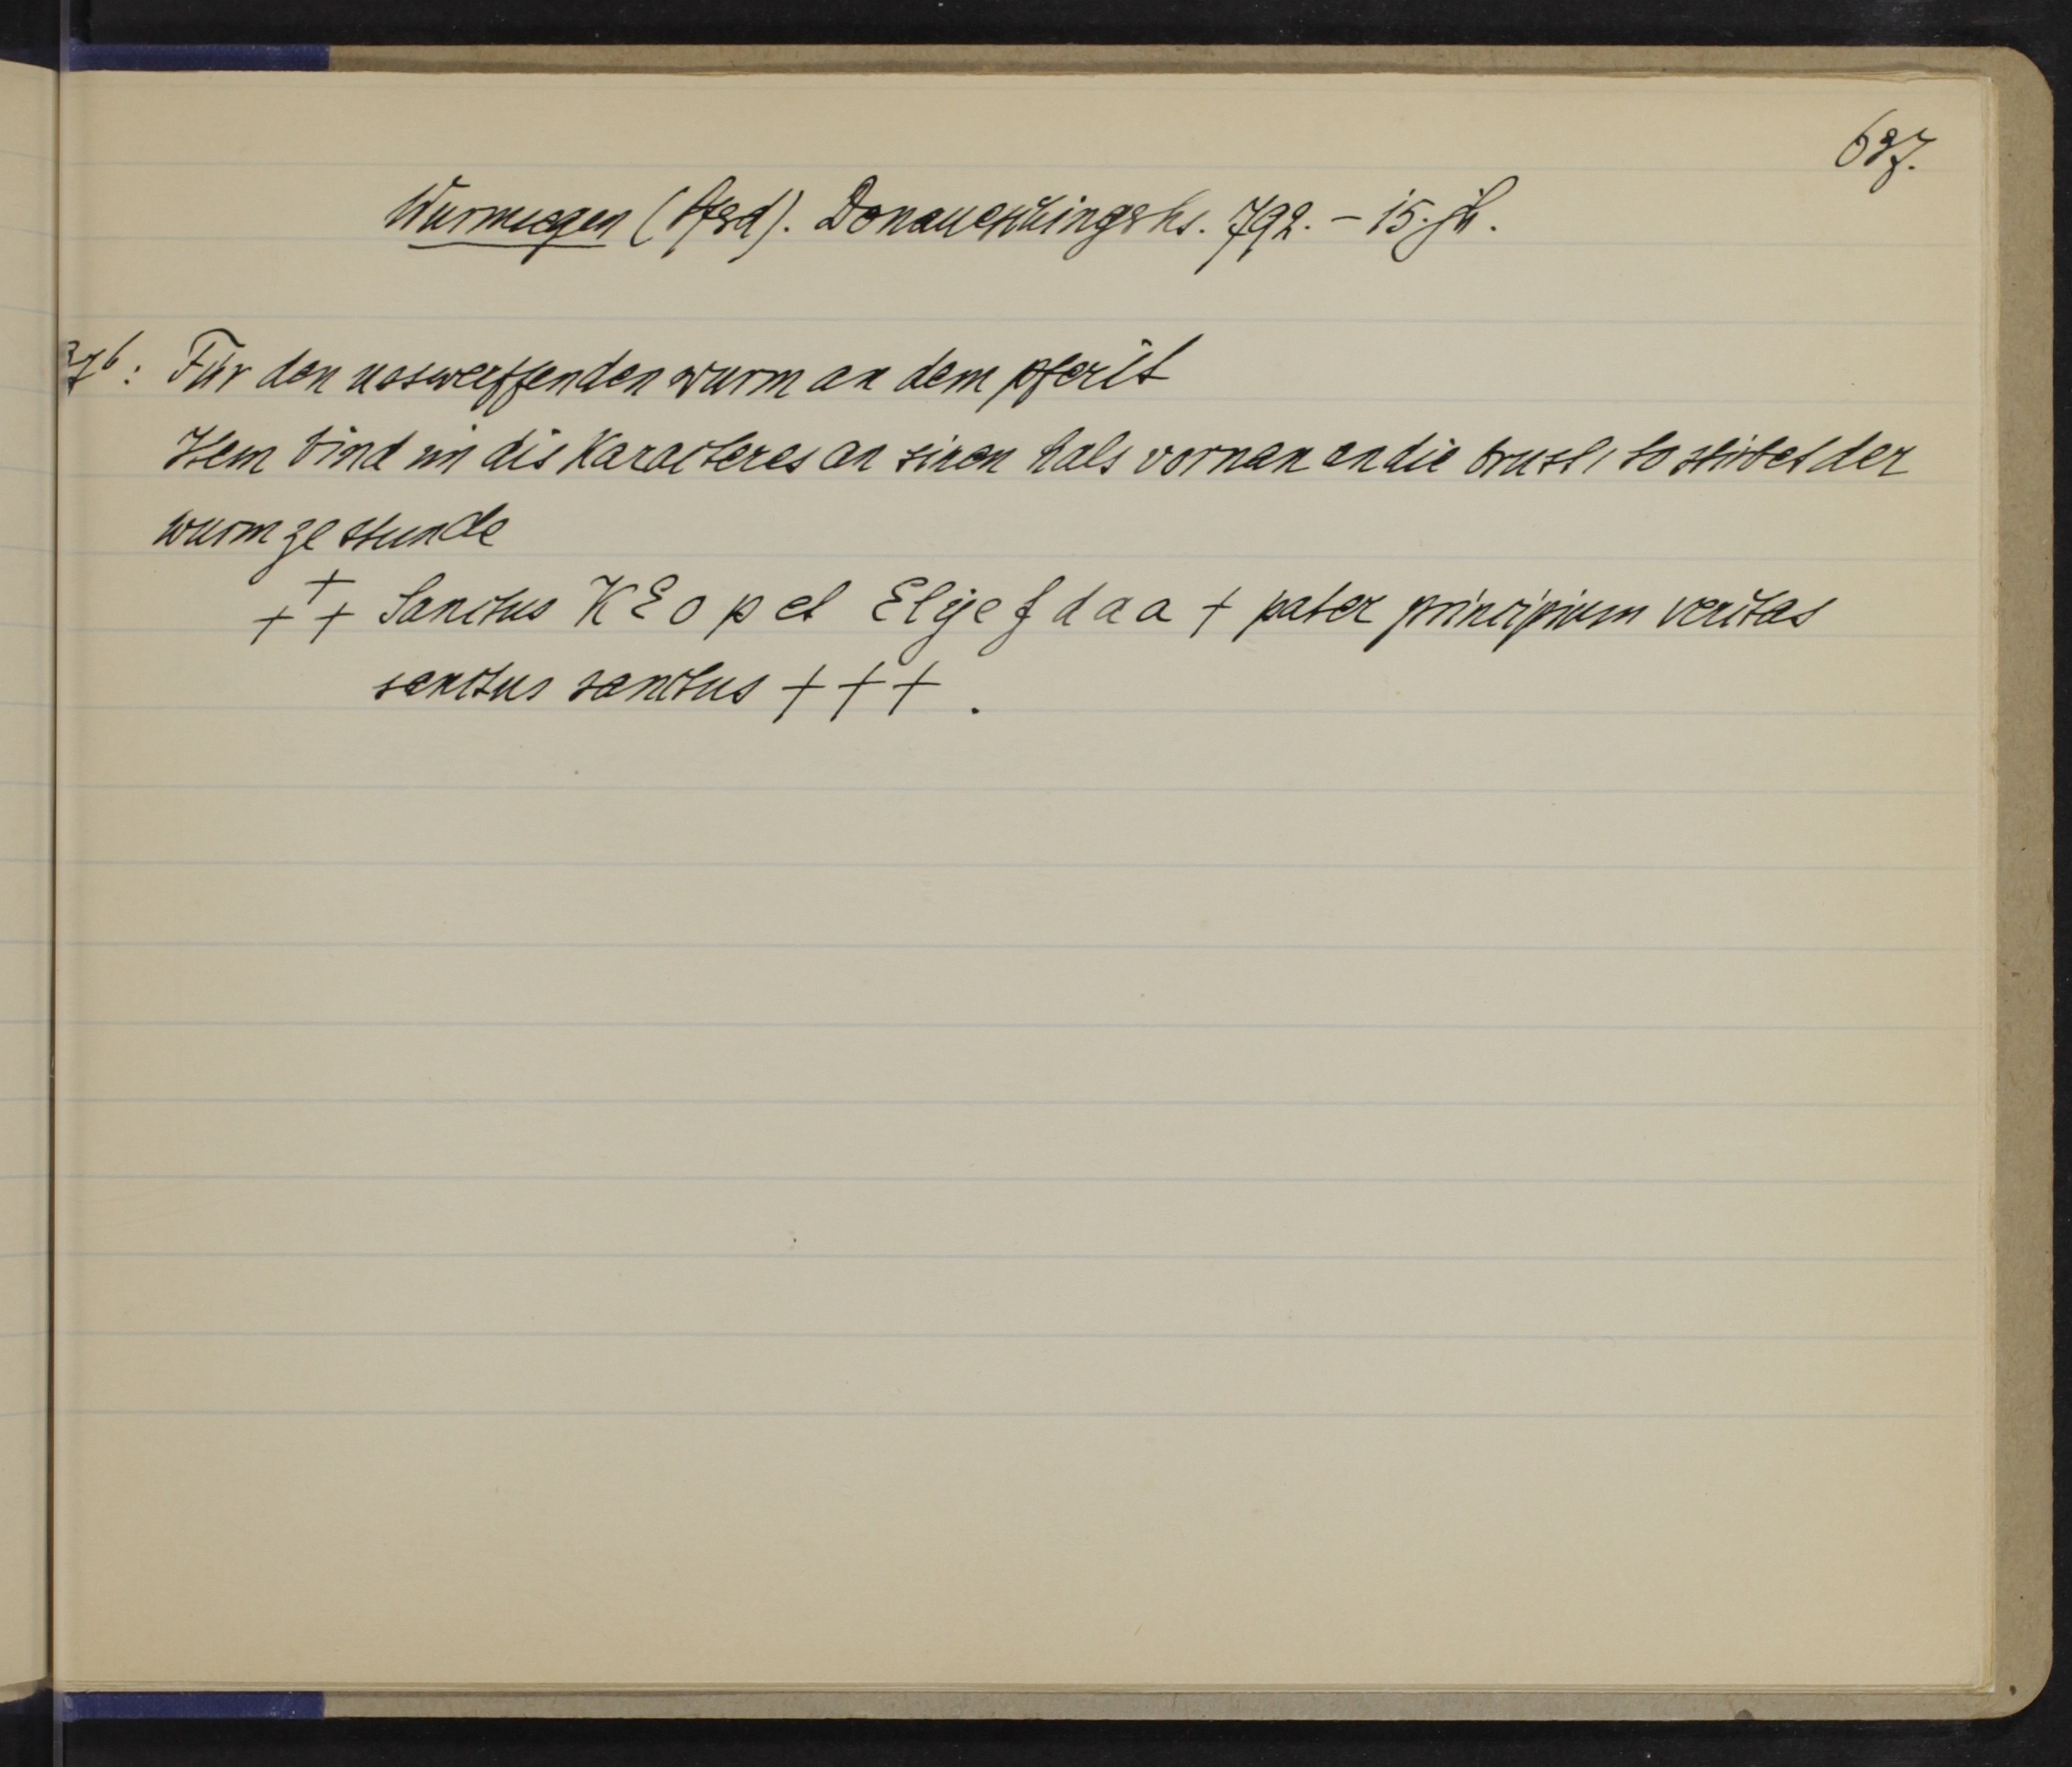 687.
Wurmsegen (Pferd). Donaueschingerhs. 792. – 15. jh.
37b: Für den uoswerffenden wurm an dem pferit
Item bind im dis Karacteres an sinen hals vornan an die brust, so stirbet der
wurm ze stunde
+++ Sanctus K E o p et Elye f d a a + pater principium veritas
sanctus sanctus +++.